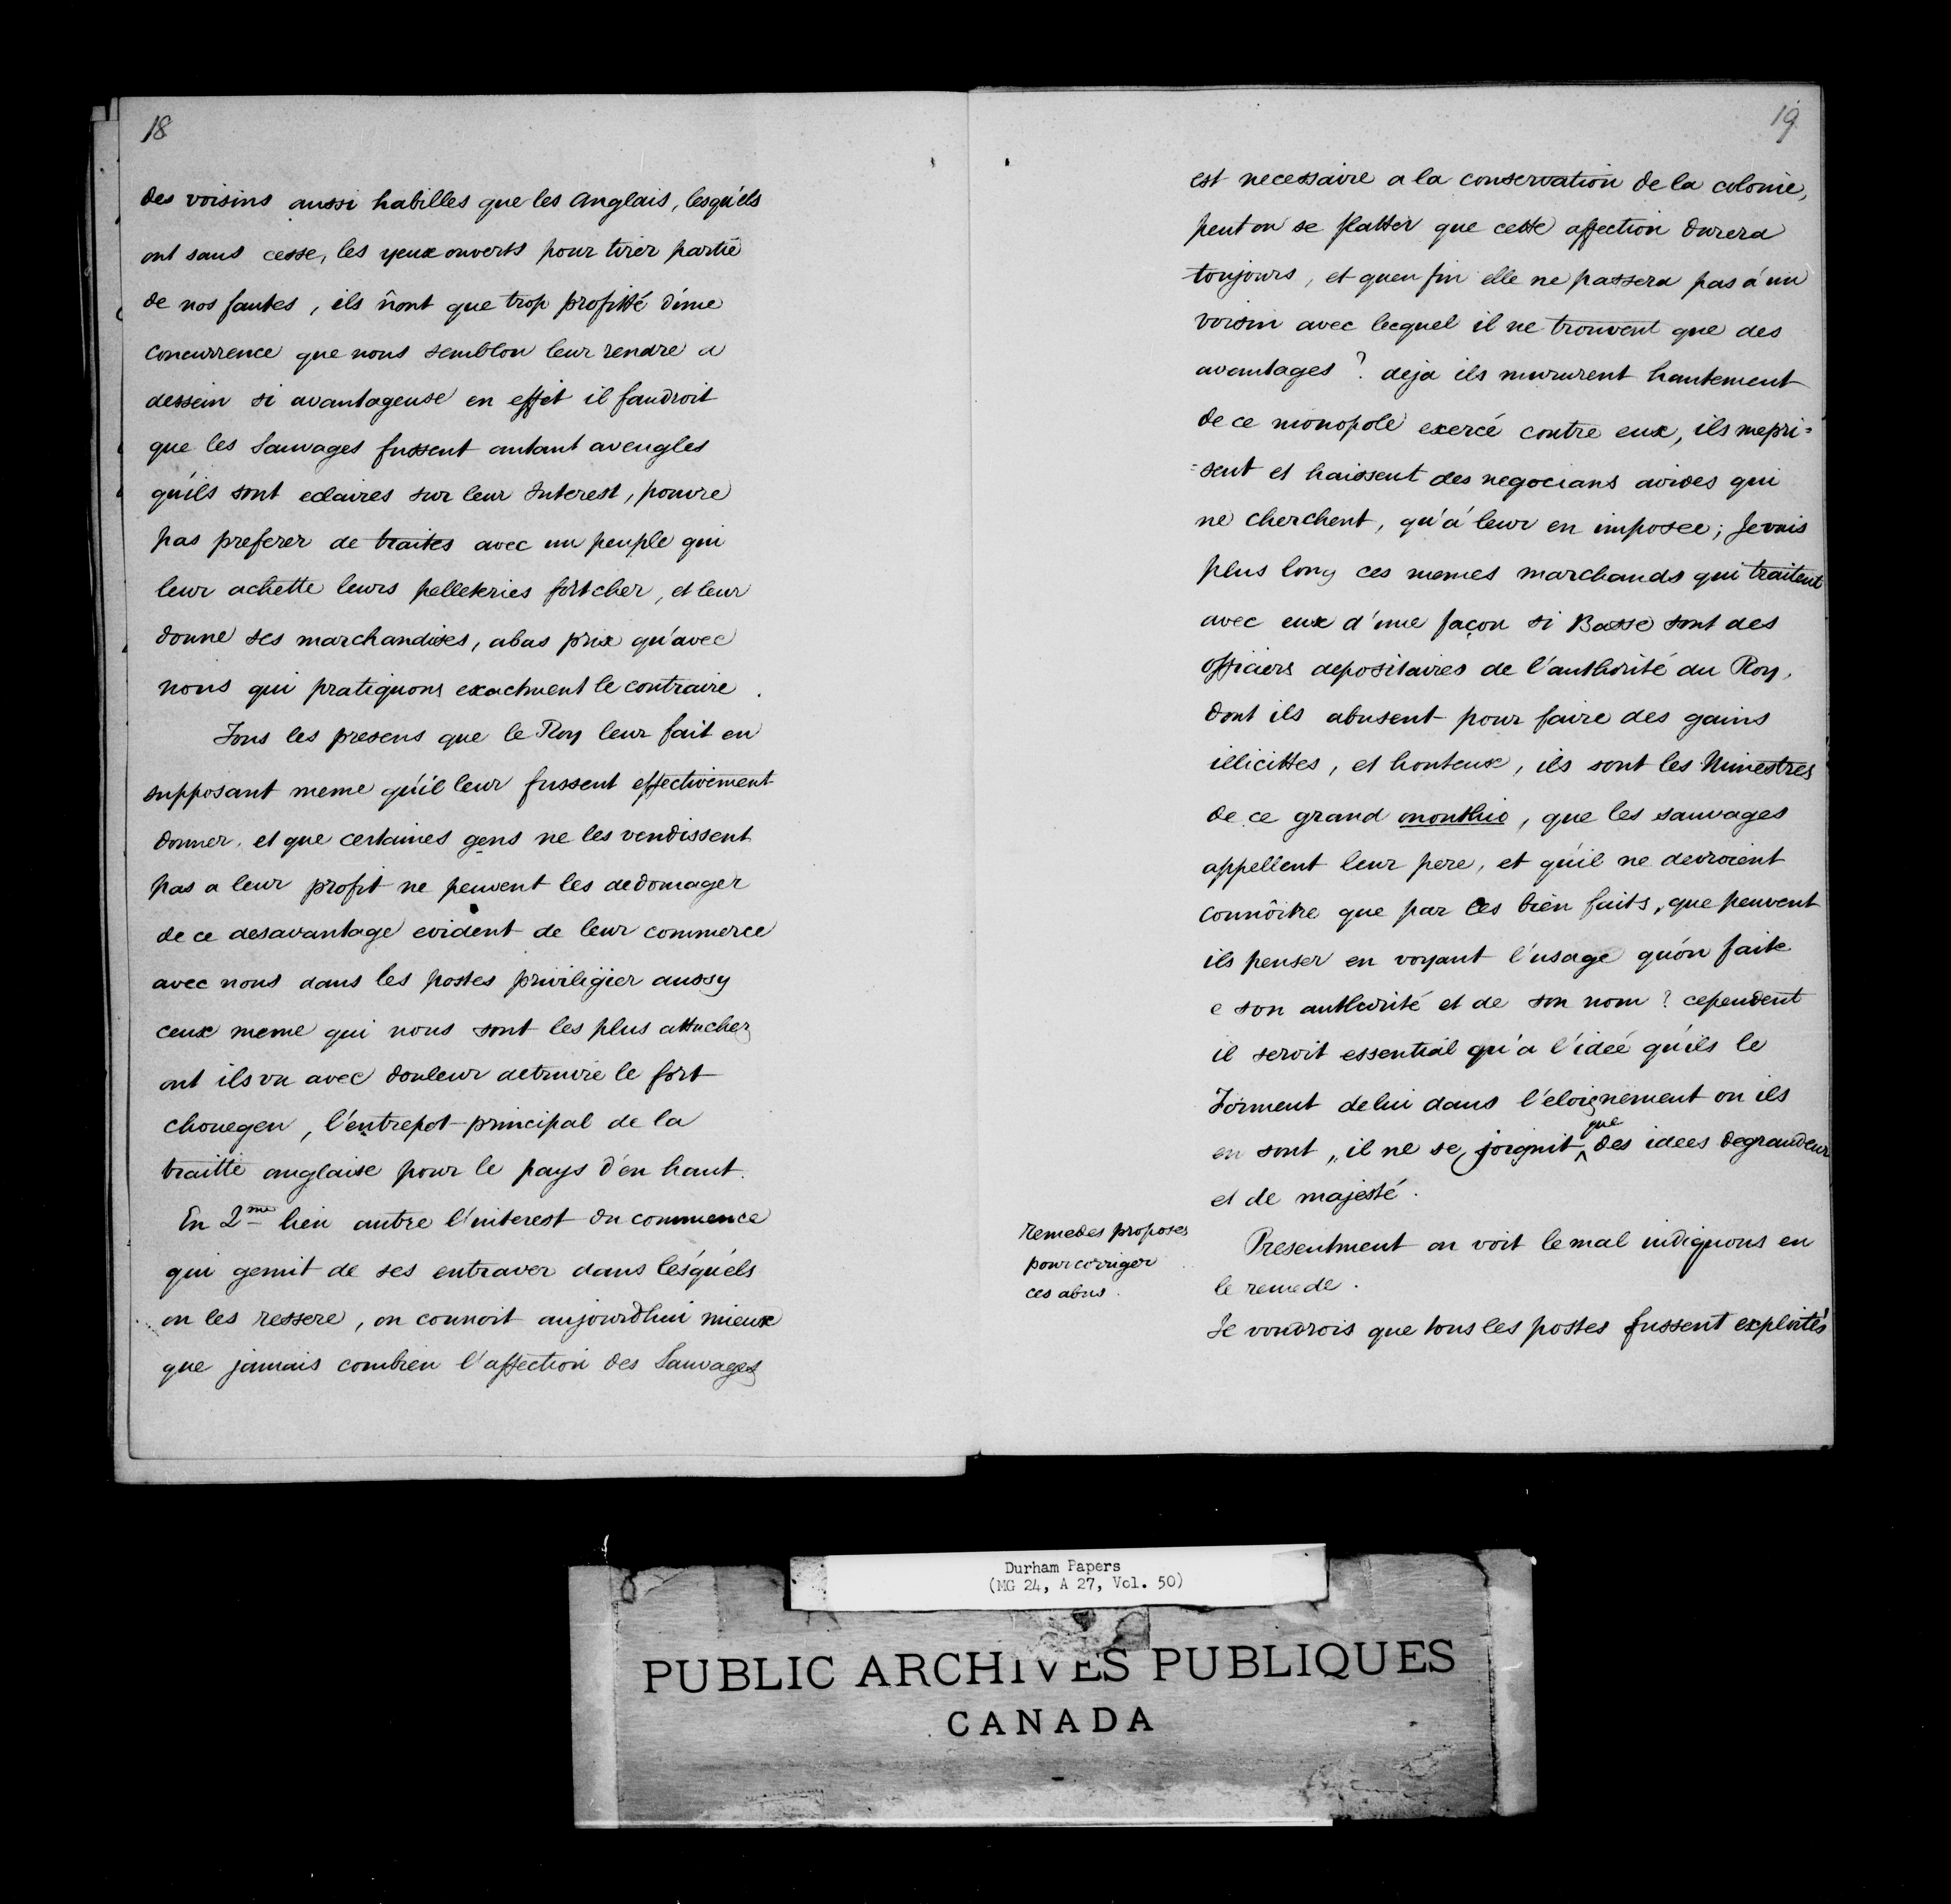 18
des voisins aussi habilles que les Anglais, lesqu'els
ont sans cesse, les yeux ouverts pour tirer partie
de nos fautes, ils n'ont que trop profitté d'une
concurrence que nous semblon leur rendre a
dessein si avantageuse en effet il faudroit
que les Sauvages fussent autant aveugles
qu'ils sont eclaires sur leur Interest, pouvre
pas preferer de traites avec un peuple qui
leur achette leurs pelleteries fort cher, et leur
donne ses marchandises, abas prix qu'avec
nous qui pratiquons exactment le contraire.
Tous les presens que le Roy leur fait en
supposant meme qu'il leur fussent effectivement
donner, et que certaines gens ne les vendissent
pas a leur profit ne peuvent les dedomager
de ce desavantage evident de leur commerce
avec nous dans les postes priviligier aussy
ceux meme qui nous sont les plus attachez
ont ils vu avec douleur detruire le fort
chouegen, l'entrepot principal de la
traitte anglaise pour le pays d'en haut.
En 2me lieu autre l'interest du commence
qui gemit de ses entraver dans les'qu'els
on les ressere, on connoit aujourd'hui mieux
que jamais combien l'affection des Sauvages
19
est necessaire a la conservation de la colonie,
peut on se flatter que cette affection durera
toujours, et quen fin elle ne passera pas à un
voisin avec lecquel il ne trouvent que des
avantages? deja ils mururent hautement
de ce monopole exercé contre eux, ils mepri=
=sent et haissent des negocians avides qui
ne cherchent, qu'á leur en imposee; Je vais
plus long ces memes marchands qui traitent
avec eux d'une façon si Basse sont des
officiers depositaires de l'authorité du Roy,
dont ils abusent pour faire des gains
illicittes, et honteux, ils sont les Ministres
de ce grandononthio, que les sauvages
appellent leur pere, et qu'il ne devroient
connôitre que par ces bien faits, que peuvent
ils penser en voyant l'usage qu'on faite
e son authorité et de son nom? cependent
il seroit essential qu'a l'ideé qu'ils le
Forment delui dans l'eloignement on ils
en sont, il ne se joignit que des idees degrandeur
et de majesté.
remedes proposes
pour corriger
ces abus.
Presentment on voit le mal indiquons en
le remede.
Je voudrois que tous les postes fussent exploités
Durham Papers
(MG 24, A 27, Vol. 50)
PUBLIC ARCHIVES PUBLIQUES
CANADA